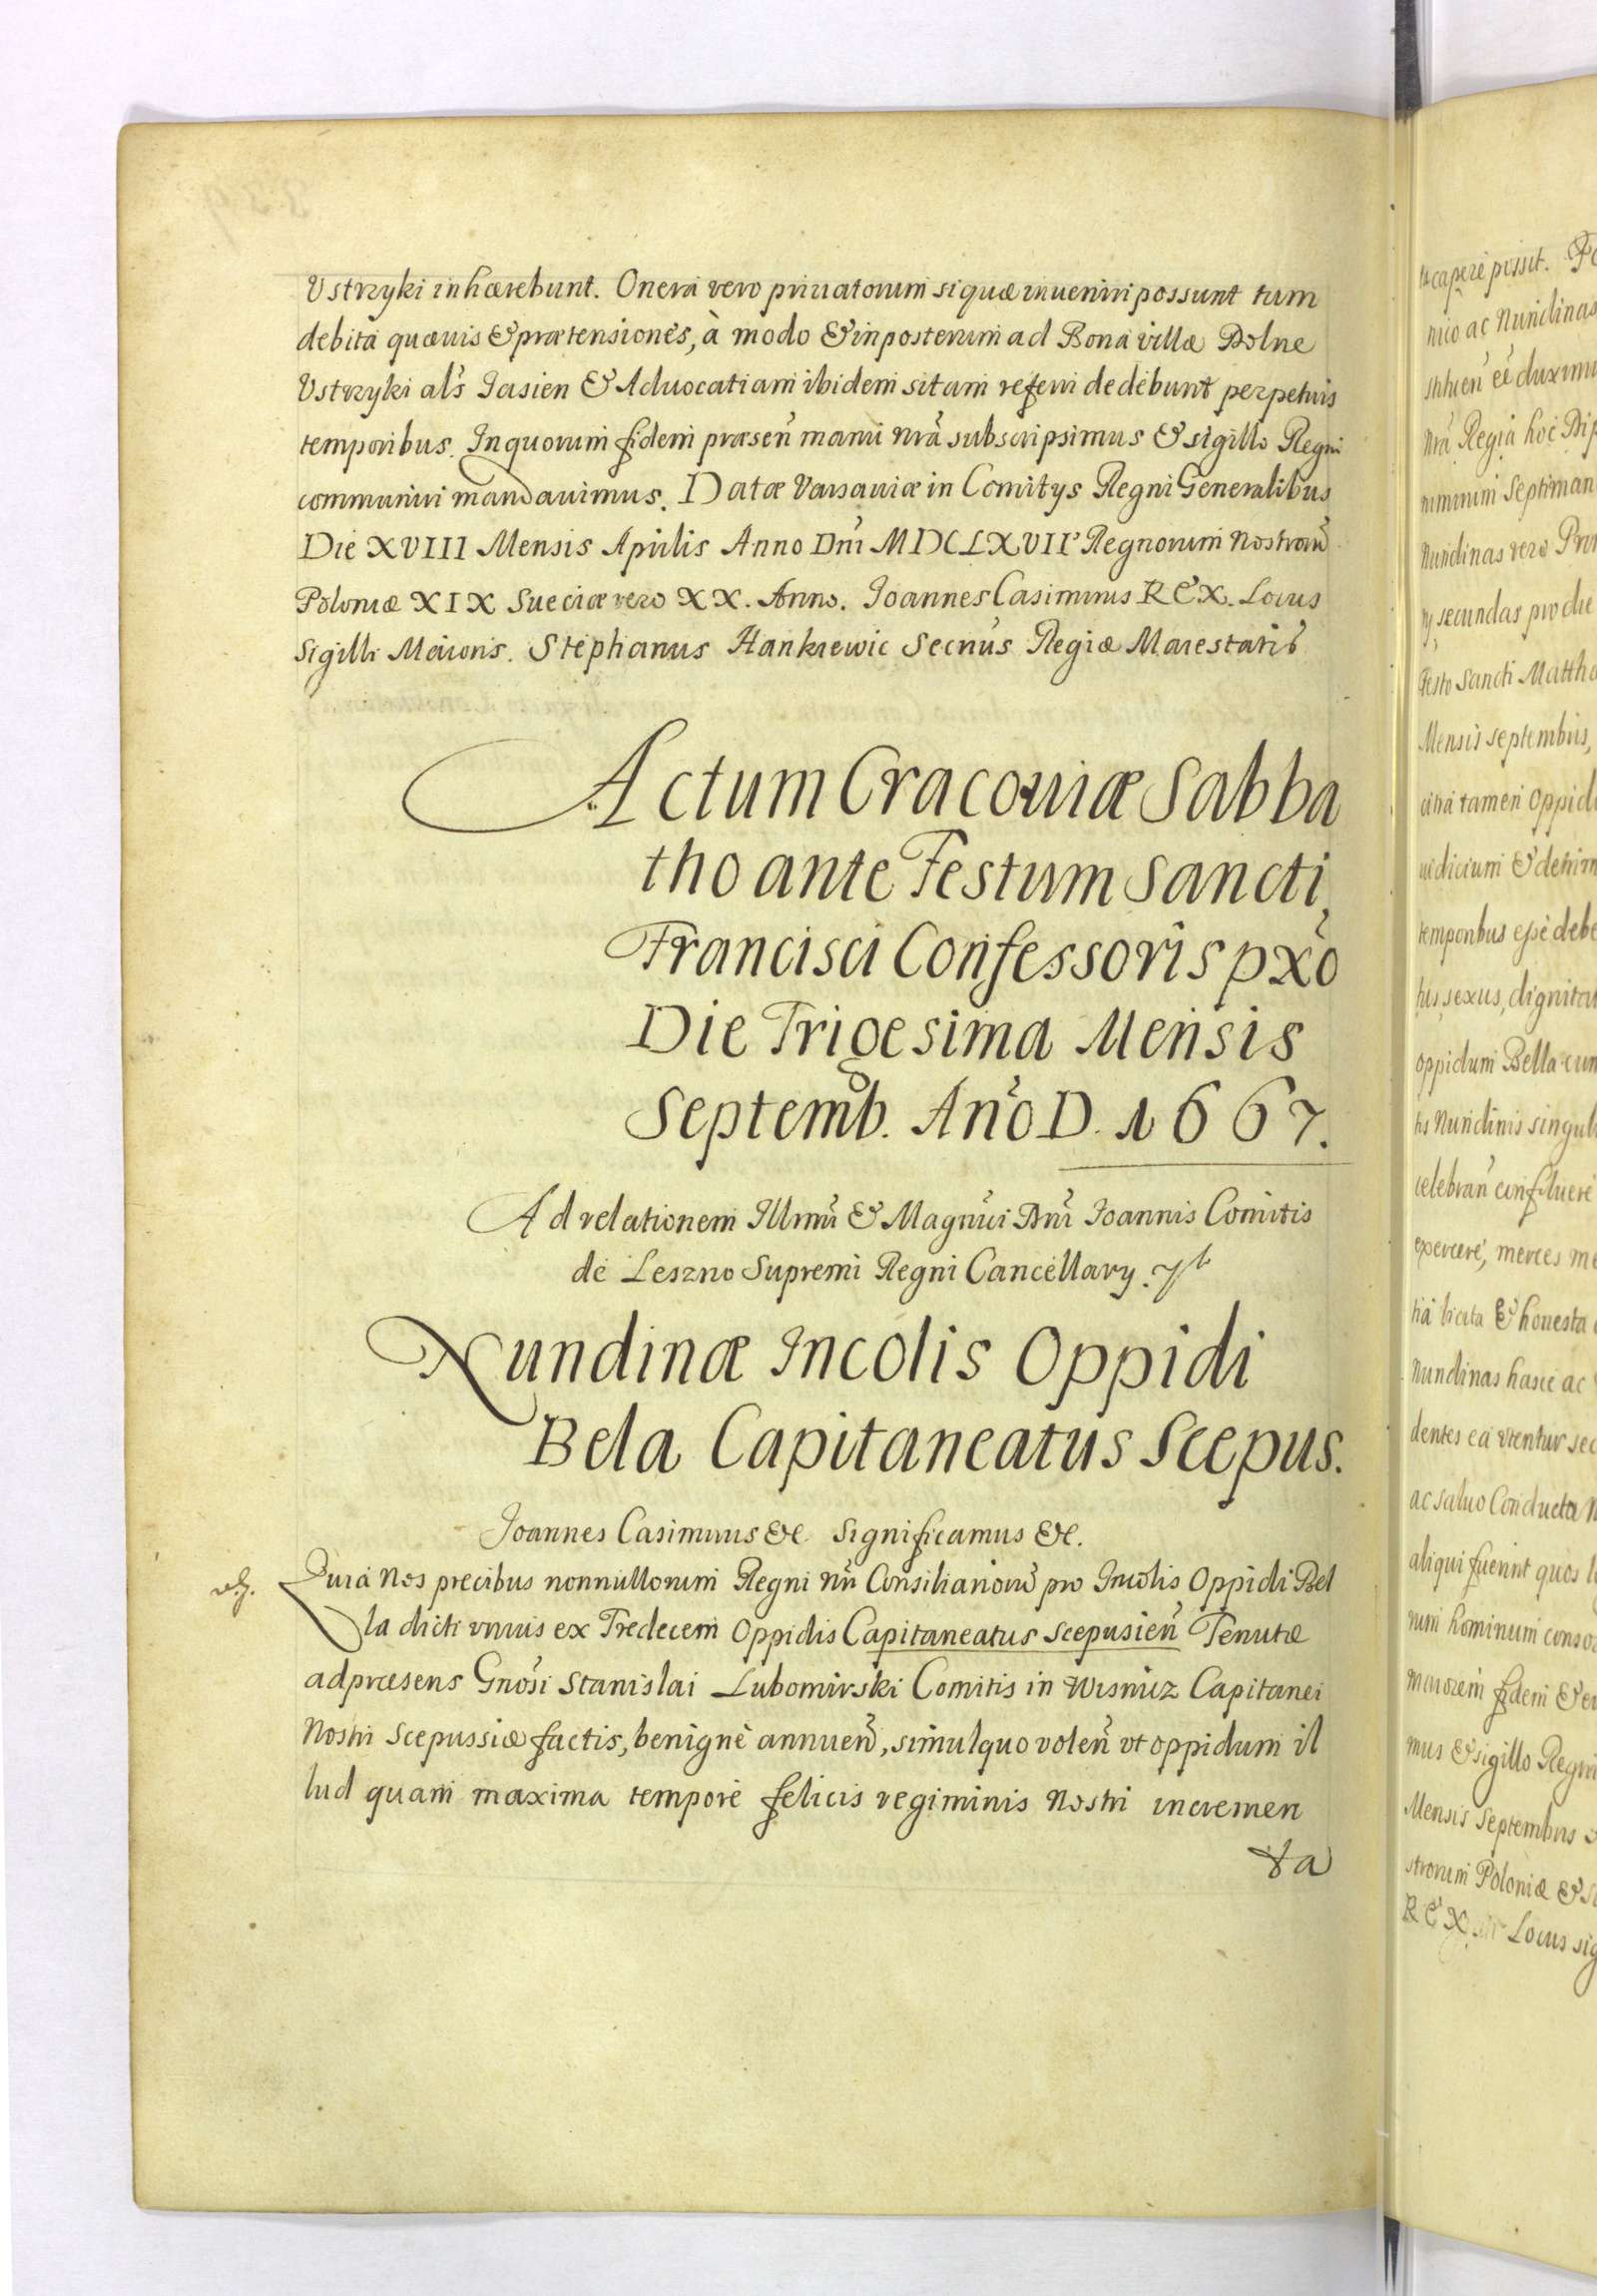 Vstrzyki inhærebunt. Onera vero priuatorum si quæ inueniri possunt tum
debita quæuis & prætensiones, à modo & inposterum ad Bona villæ Dolne
Vstrzyki als Jasien & Aduocatiam ibidem sitam referri debebunt perpetuis
temporibus. In quorum fidem præsen̄ manu nrā subscripsimus & sigillo Regni
communiri mandauimus. Datæ Varsauiæ in Comitys Regni Generalibus
Die XVIII Mensis Aprilis Anno Dnī MDCLXVII Regnorum nostrorū
Poloniæ XIX Sueciæ vero XX. Anno. Joannes Casimirus REX. Locus
Sigilli Maioris. Stephanus Hankiewic Secr̄us Regiæ Maiestatis
Actum Cracouiæ Sabba
tho ante Festum Sancti
Francisci Confessoris pxō
Die Trigesima Mensis
Septemb. An̄o D. 1667.
Ad relationem Illmī & Magn̄ci Dnī Joannis Comitis
de Leszno Supremi Regni Cancellary.
Nundinæ Incolis Oppidi
Bela Capitaneatus Scepus.
Joannes Casimirus &c. Significamus &c.
Quia Nos precibus nonnullorum Regni nrī Consiliariorū pro Incolis Oppidi Bel
la dicti vnius ex Tredecem Oppidis Capitaneatus Scepusien̄ Tenutæ
ad præsens Gnōsi Stanislai Lubomirski Comitis in Wisnicz Capitanei
Nostri Scepussiæ factis, benignè annuen̄, simulquo volen̄ vt oppidum il
lud quam maxima tempore felicis regiminis Nostri incremen
ta
capere possit.
nico ac Nundinas
duximus
nrā Regia hoc
Septiman
Nundinas vero
secundas pro die
Festo Sancti Matthæ
Mensis Septembris,
citra tamen oppid
temporibus esse debe
sexus, dignitat
oppidum Bella cum
Nundinis singul
celebran̄ confluere
exercere, merces
licita & honesta
Nundinas hasce ac
dentes ea vtentur sec
ac saluo Conductu
aliqui fuerint quos
hominum conso
maiorem fidem &
mus & sigillo Regni
Mensis Septembris
strorum Poloniæ &
REX. Locus sig